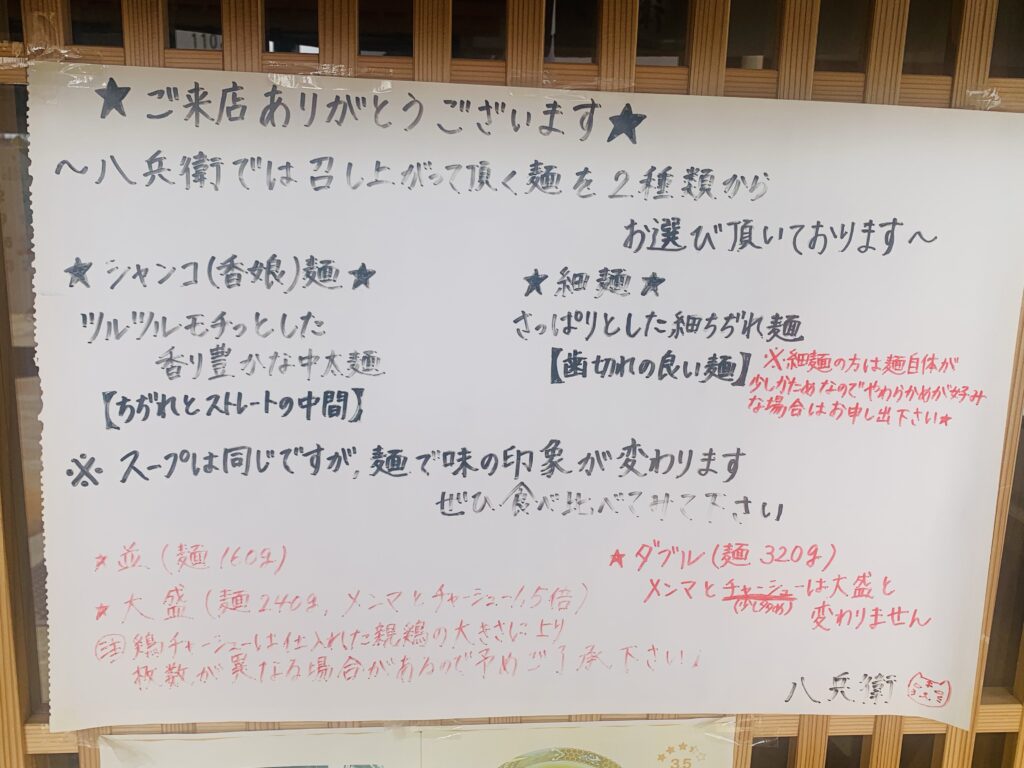 ★ご来店ありがとうございます★
～八兵衛では召し上がって頂く麺を2種類から
お選び頂いております～
★シャンコ(香娘)麺★
ツルツルモチっとした
香り豊かな中太麺
【ちぢれとストレートの中間】
★細麺★
さっぱりとした細ちぢれ麺
【歯切れの良い麺】
※細麺の方は麺自体が
少しかためなのでやわらかめが好み
な場合はお申し出下さい★
※スープは同じですが,麺で味の印象が変わります
ぜひ食べ比べてみて下さい
★並(麺160g)
★大盛(麺240g,メンマとチャーシュー1,5倍)
㊟鶏チャーシューは仕入れた親鶏の大きさにより
枚数が異なる場合があるので予めご了承下さい。
★ダブル(麺320g)
メンマとチャーシューは大盛と
(少し多め)
変わりません
八兵衛
3.5